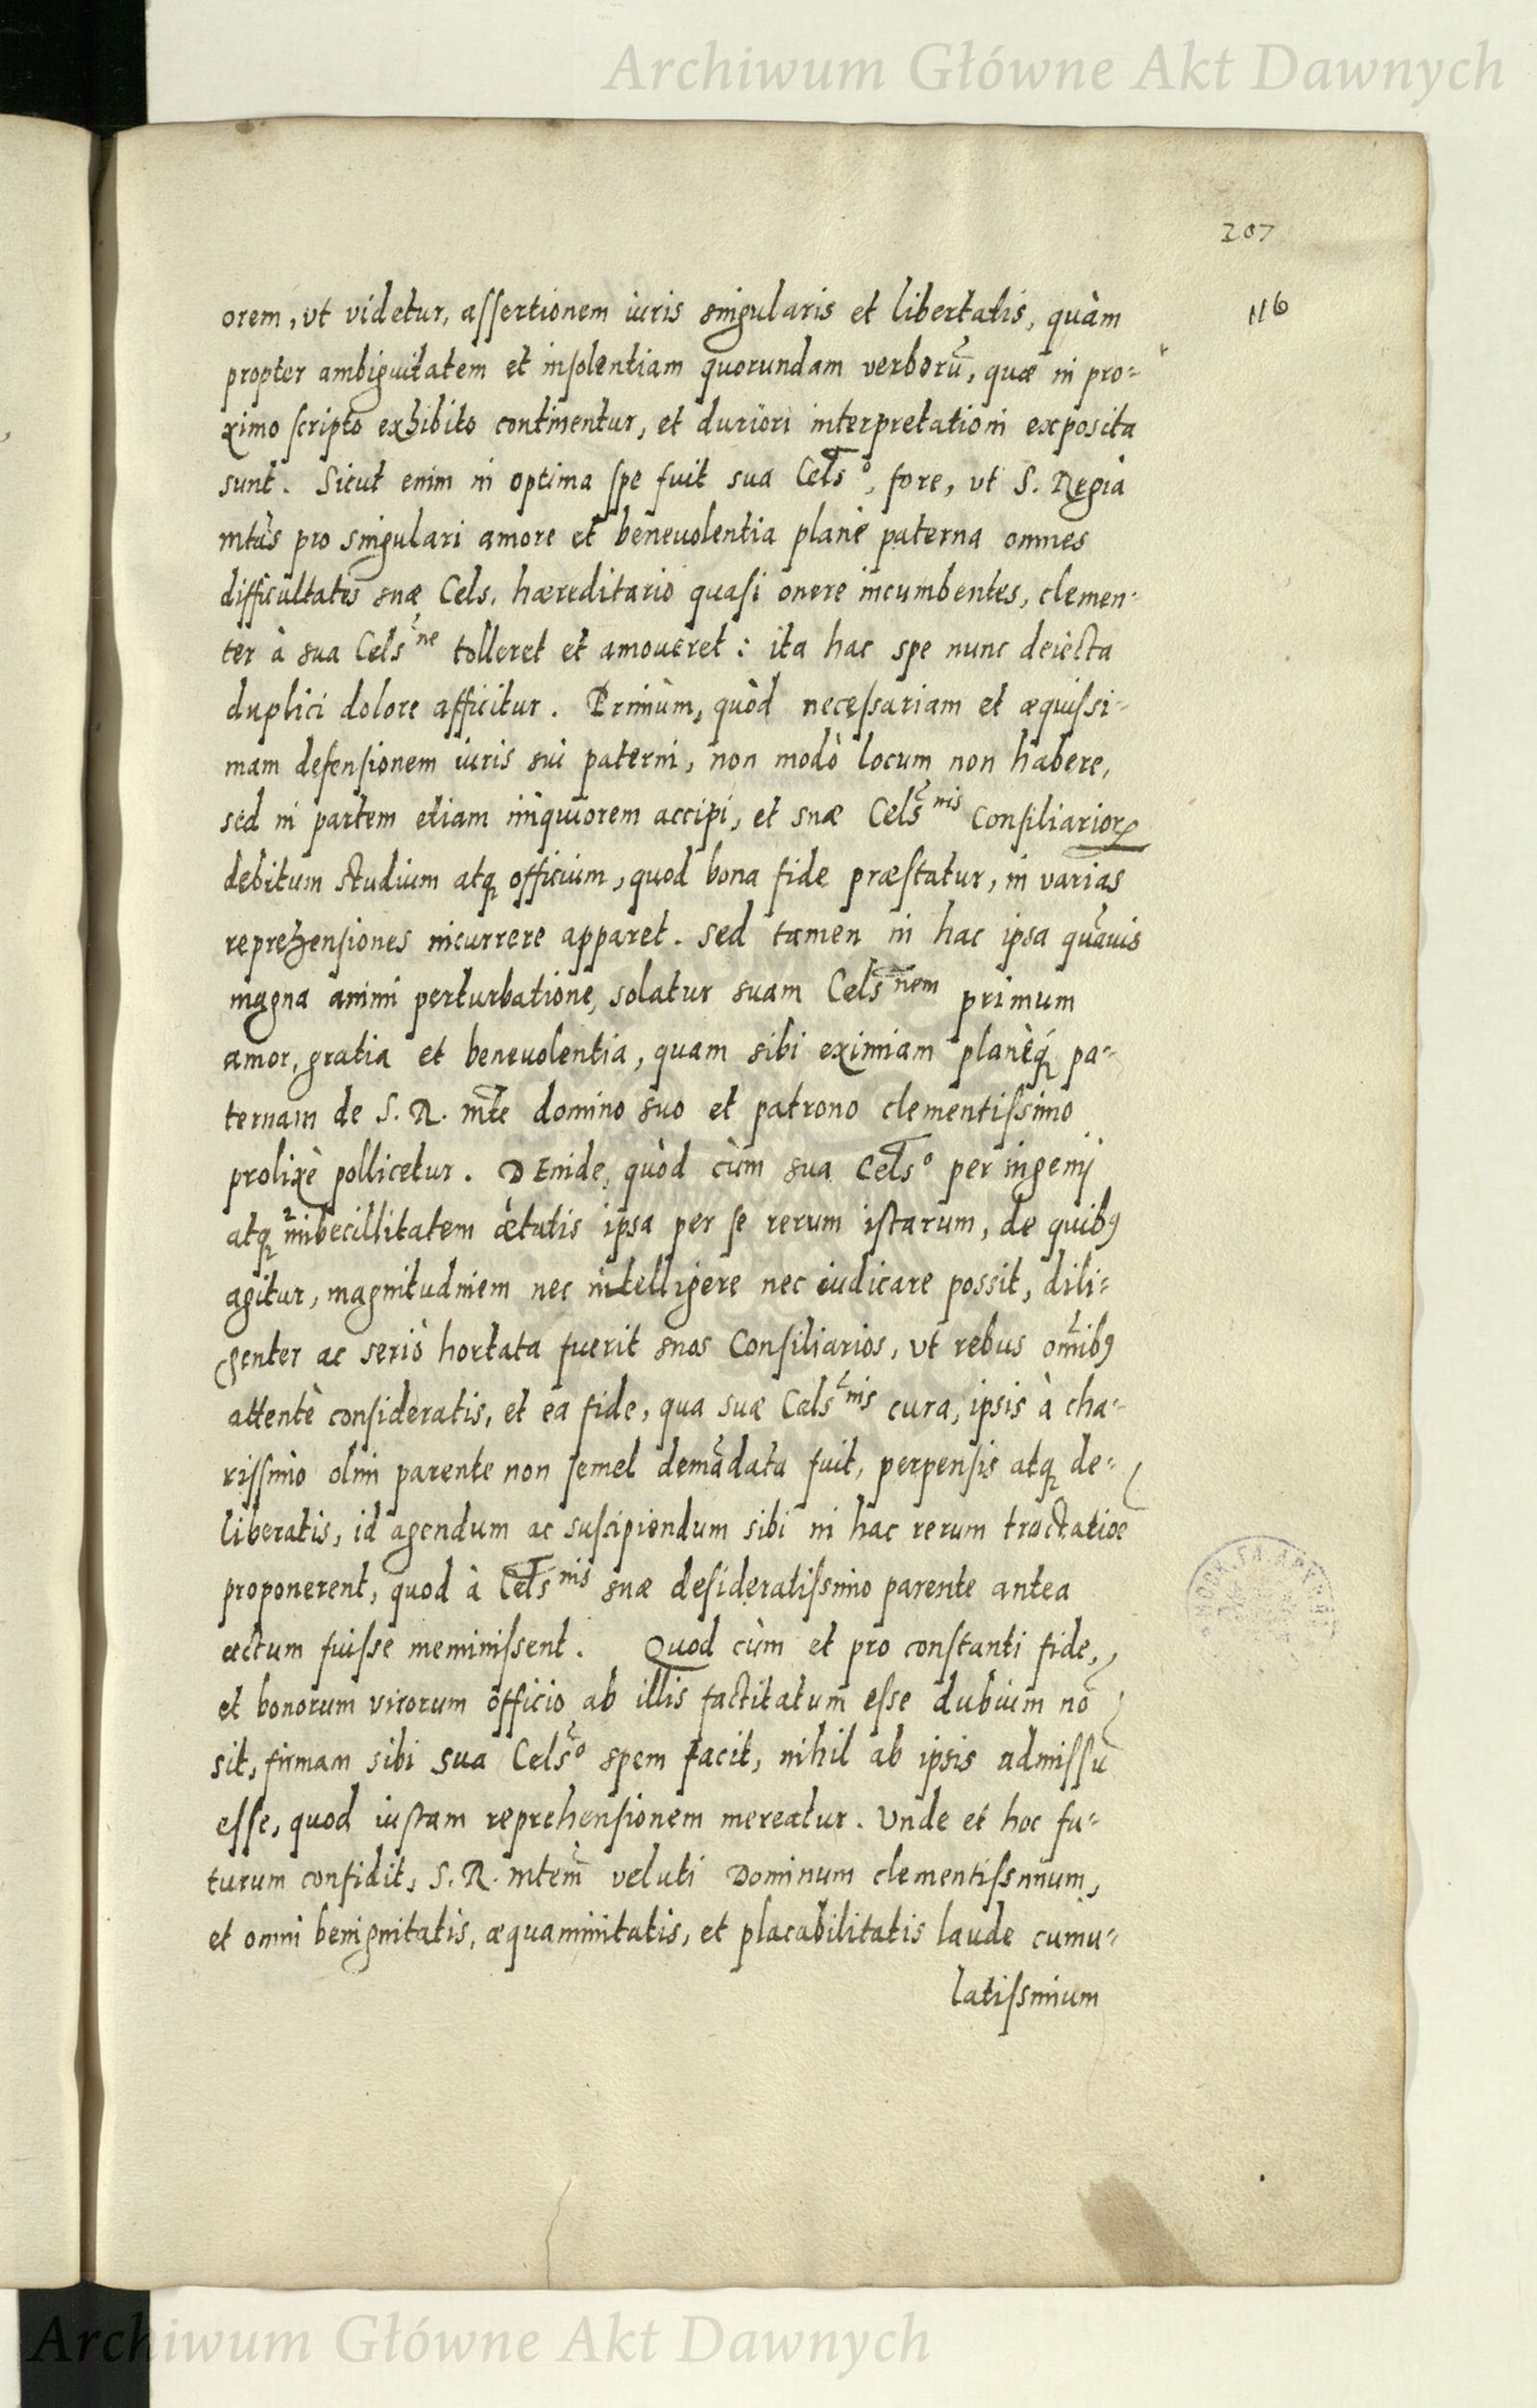 Archiwum Główne Akt Dawnych
207
116
orem, vt videtur, assertionem iuris singularis et libertatis, quàm
propter ambiguitatem et insolentiam quorundam verborū, quæ in pro-
ximo scripto exhibito continentur, et duriori interpretationi exposita
sunt. Sicut enim in optima spe fuit sua Cels^o, fore, vt S. Regia
mtas pro singulari amore et beneuolentia planè paterna omnes
difficultates suæ Cels. hæreditario quasi onere incumbentes, clemen-
ter à sua Cels^ne tolleret et amoueret: ita hac spe nunc deiecta
duplici dolore afficitur. Primùm, quòd necessariam et æquissi-
mam defensionem iuris sui paterni, non modò locum non habere,
sed in partem etiam iniquiorem accipi, et suæ Cels^nis Consiliarioꝝ
debitum studium atqꝫ officium, quod bona fide præstatur, in varias
reprehensiones incurrere apparet. Sed tamen in hac ipsa quāuis
magna animi perturbatione, solatur suam Cels^nem primum
amor, gratia et beneuolentia, quam sibi eximiam planèqꝫ pa-
ternam de S. R. mte domino suo et patrono clementissimo
prolixè pollicetur. DEinde, quòd cùm sua Cels^o per ingenij
atqꝫ imbecillitatem ætatis ipsa per se rerum istarum, de quibꝰ
agitur, magnitudinem nec intelligere nec iudicare possit, dili-
genter ac seriò hortata fuerit suos Consiliarios, vt rebus omībꝰ
attentè consideratis, et ea fide, qua suæ Cels^nis cura, ipsis à cha-
rissimo olim parente non semel demādata fuit, perpensis atqꝫ de-
liberatis, id agendum ac suscipiendum sibi in hac rerum tractatioe
proponerent, quod à Cels^nis suæ desideratissimo parente antea
actum fuisse meminissent. Quod cùm et pro constanti fide,
et bonorum virorum officio ab illis factitatum esse dubium nō
sit, firmam sibi sua Cels^o spem facit, nihil ab ipsis admissū
esse, quod iustam reprehensionem mereatur. Vnde et hoc fu-
turum confidit, S. R. mtem veluti Dominum clementissimum,
et omni benignitatis, æquanimitatis, et placabilitatis laude cumu-
latissimum
Archiwum Główne Akt Dawnych